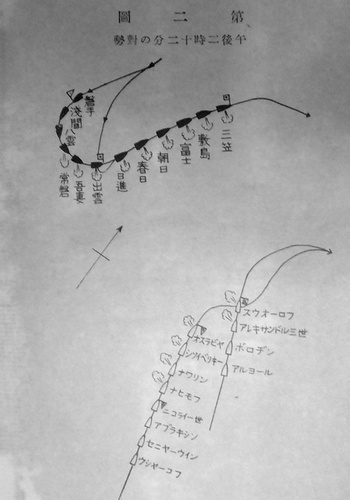 圖二第
勢對の分二十時二後午
三笠
敷島
富士
朝日
春日
日進
出雲
吾妻
常磐
八雲
浅間
磐手
スウオーロフ
アレキサンドル三世
ボロヂン
アルヨール
オスラビヤ
シソイベリキー
ナワリン
ナヒモフ
ニコライ一世
アプラキシン
セニヤーウイン
ウシヤーコフ